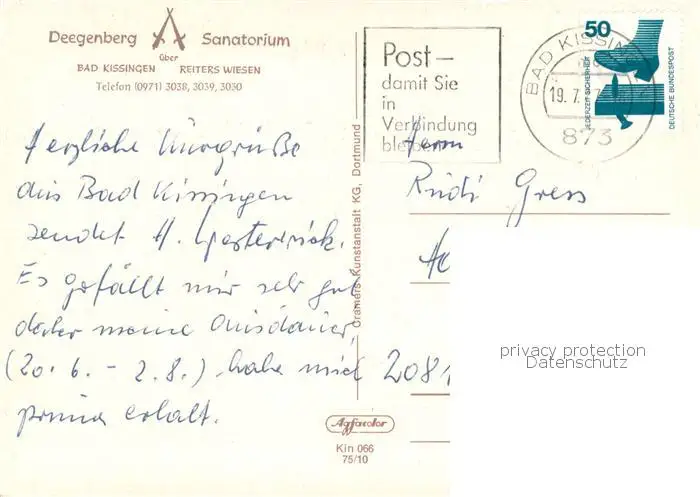 Deegenberg Sanatorium
über
BAD KISSINGEN REITERS WIESEN
Telefon (0971) 3038, 3039, 3030
Herzliche Kurgrüße
aus Bad Kissingen
sendet H.
Es gefällt mir sehr gut
daher meine Ausdauer,
(20. 6. - 2. 8.) habe mich
prima erholt.
Cramers Kunstanstalt KG, Dortmund
Agfacolor
Kin 066
75/10
Post –
damit Sie
in
Verbindung
bleiben
BAD KISSIN
19.7.
873
50
JEDERZEIT SICHERHEIT
DEUTSCHE BUNDESPOST
Herrn
Rudi Gress
2081
privacy protection
Datenschutz